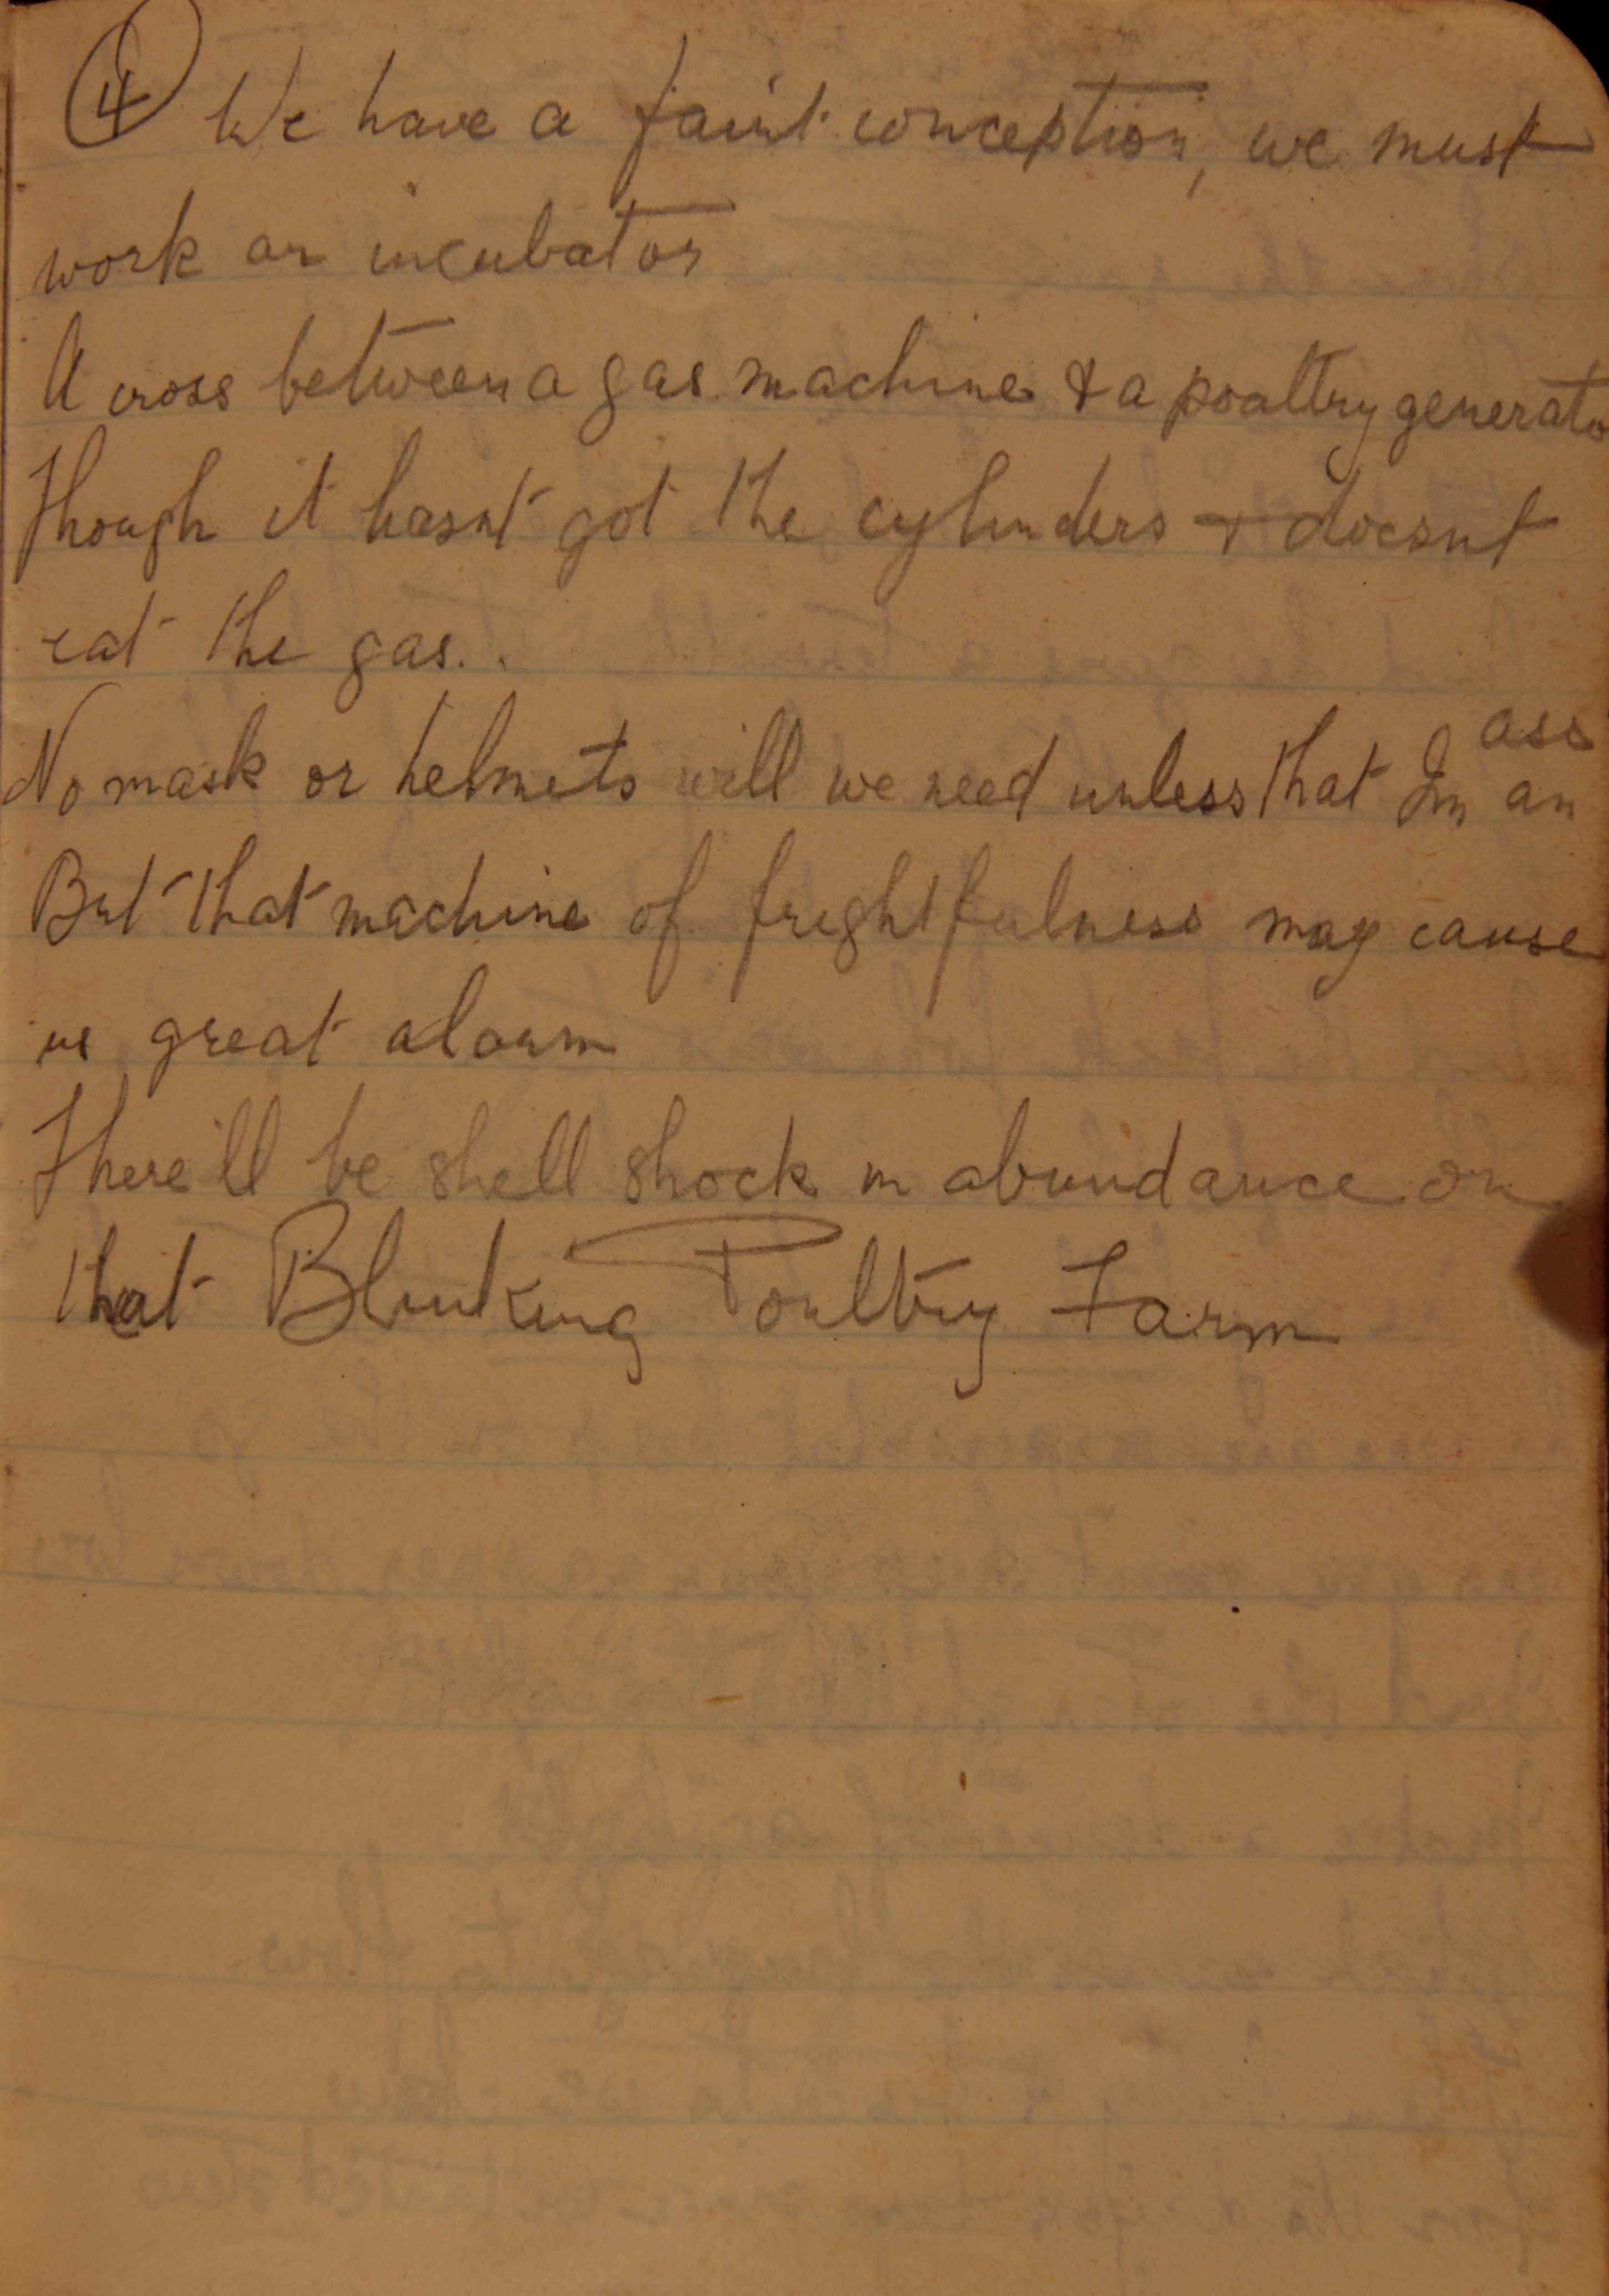 ④ We have a faint conception, we must
work an incubator
A cross between a gas machine & a poaltry generato
Though it hasnt got the cylinders & doesnt
eat the gas..
No mask or helmets will we need unless that Im an ass
But that machine of frightfulness may cause
us great alarm
There'll be shell shock in abundance on
that Blinking Poultry Farm